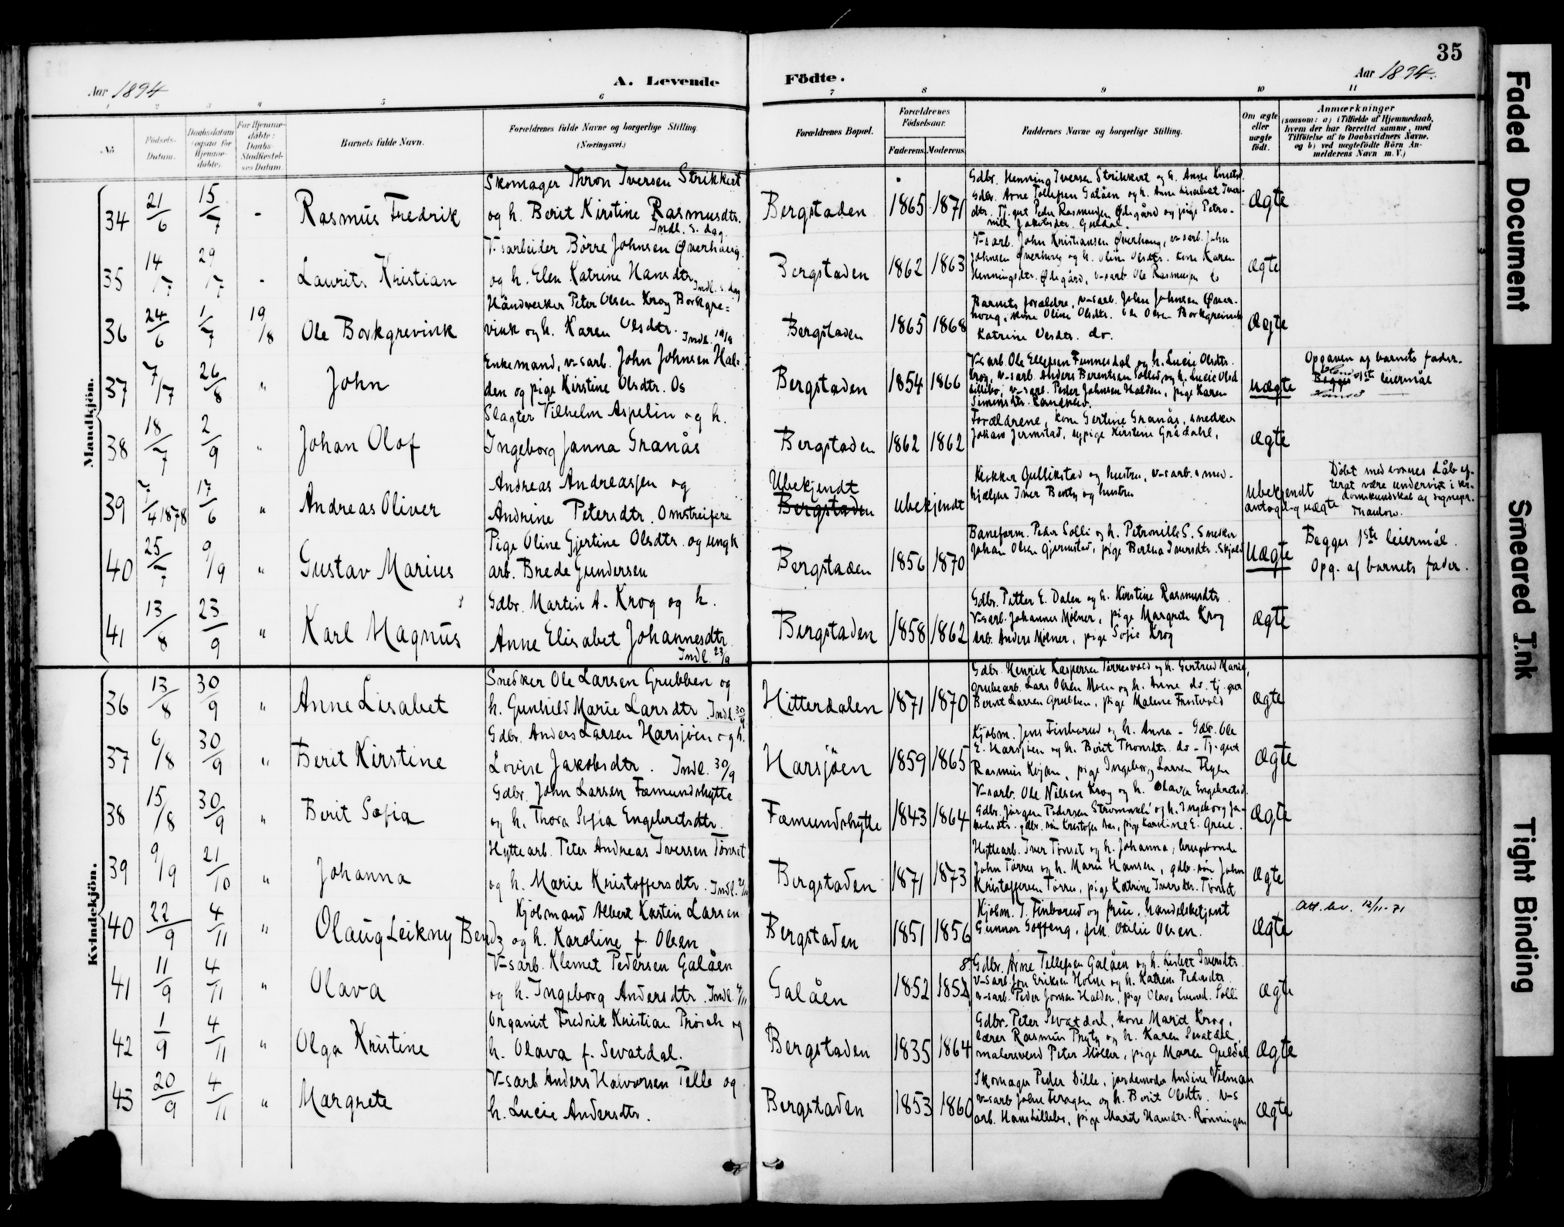 35
Aar 1894
A. Levende
Födte.
Aar 1894.
1 2 3 4 5 6 7 8 9 10 11
No
Födsels-Datum.
Daabsdatum (ogsaa for Hjemme-döbte.
For Hjemme-döbte: Daabs-Stadfæstel-ses Datum.
Barnets fulde Navn.
Forældrenes fulde Navne og borgerlige Stilling.
(Næringsvei.)
Forældrenes Bopæl.
Forældrenes Födselsaar.
Faderens. Moderens.
Faddernes Navne og borgerlige Stilling.
Om ægte eller uægte födt.
Anmærkninger
(saasom: a) i Tilfælde af Hjemmedaab, hvem der har forrettet samme, med Tilföielse af to Daabsvidners Navne, og b) ved uægtefödte Börn An-melderens Navn m. V.)
Mandkjön.
34 21/6 15/7 - Rasmus Fredrik
Skomager Thron Iversen Strikkert
og h. Berit Kirstine Rasmusdtr.
Indl. s. dag.
Bergstaden 1865 1871
Gdbr. Henning Iversen Strikkert og h. Anne
Gdbr. Arne Tollefsen Galåen og h. Anne Lisabet Iver-
dtr. Tj.gut Peder Rasmusen Ödegård og pige Petro-
ægte
35 14/7 29/7 - Laurits Kristian
V-sarbeider Börre Johnsen Överhaug.
og h. Elen Katrine Hansdtr. Indl. s. dag
Bergstaden 1862 1863
V-sarb. John Kristiansen Överhaug, v-sarb. John
Johnsen Överhaug og h. Olin Olsdtr. kone Karen
Henningsdtr. Ödegård, v-sarb. Ole Rasmusen
ægte
36 24/6 1/7 19/8 Ole Borkgrevink
Håndverker Peter Olsen Krog Borkgre=
vink og h. Karen Olsdtr. Indl. 19/8
Bergstaden 1865 1868
Barnets forældre, v-sarb. John Johnsen Över-
haug, kone Oline Olsdtr. Olsen Borkgrevink
Katrine Olsdtr. do.
ægte
37 7/7 26/8 " John
Enkemand, v-sarb. John Johnsen Hal-
den og pige Kirstine Olsdtr. Os
Bergstaden 1854 1866
V-sarb. Ole Ellefsen Funnesdal og h. Lucie Olsdtr.
Krog, v-sarb. Anders Berentsen Solli og h. Lucie Olsd
v-sarb. Peder Johnsen Halden, pige Karen
Simensdtr.
uægte
Opgaven af barnets fader.
1ste leiermål
38 18/7 2/9 " Johan Olof
Slagter Vilhelm Aspelin og h.
Ingeborg Janna Granås
Bergstaden 1862 1862
Forældrene, kone Gertine Granås, snedker
Johan Jermstad, sypige Kirstine Grådahl,
ægte
39 7/4 1878 17/6 " Andreas Oliver
Andreas Andreassen og
Andrine Petersdtr. Omstreifere
Ubekjendt
Bergstaden
ubekjendt
Klokker Gullikstad og hustru, v-sarb. smed-
hjælper Iver Bentz og hustru
ubekjendt
antagelig uægte
Döbt med voxnes dåb ef-
terat være undervist i kri-
stendomskundskab af sognepr.
Thaulow.
40 25/7 9/9 " Gustav Marius
Pige Oline Gjertine Olsdtr. og ungk
arb. Brede Gundersen
Bergstaden 1856 1870
Baneform. Peder Solli og h. Petronille S. Snedker
Johan Olsen Gjermstad, pige Bertha Iversdtr.
Uægte
Begges 1ste leiermål.
Opg. af barnets fader.
41 13/8 23/9 " Karl Magnus
Gdbr. Martin A. Krog og h.
Anne Elisabet Johannesdtr.
Indl. 23/9
Bergstaden 1858 1862
Gdbr. Petter E. Dalen og h. Kirstine Rasmusdtr.
V-sarb. Johannes Mölner, pige Margrete Krog
Arb. Anders Mölner, pige Sofie Krog
ægte
Kvindekjön.
36 13/8 30/9 " Anne Lisabet
Snedker Ole Larsen Grubben og
h. Gunhild Marie Larsdtr. Indl. 30/9
Hitterdalen 1871 1870
Gdbr. Henrik Kaspersen Törresvold og h. Gertrud Marie,
grubearb. Lars Olsen Moen og h. Anne do. tj.gut
Bernt Larsen Grubben, pige Malene
ægte
37 6/8 30/9 " Berit Kirstine
Gdbr. Anders Larsen Harsjöen og h.
Lovise Jakobsdtr. Indl. 30/9
Harsjöen 1859 1865
Kjöbm. Jens Finbarud og h. Anna - Gdbr. Ole
E. Harsjöen og h. Berit Thomdtr. do - Tj.gut
Rasmus Kojan, pige Ingeborg Larsen Flyen
ægte
38 15/8 30/9 " Berit Sofia
Gdbr. John Larsen Fæmundshytte
og h. Thora Sofia Engebretsdtr.
Fæmundshytte 1843 1864
V-sarb. Ole Nilsen Krog og h. Olava Engebretsd.
Gdbr. Jörgen Pedersen Strömmevold og h. Ingeborg Ja-
kobsdtr. gdbr. sön Kristofer pige Karoline E. Greie.
ægte
39 9/9 21/10 " Johanna
Hyttearb. Peter Andreas Iversen Tönset
og h. Marie Kristoffersdtr. Indl.
Bergstaden 1871 1873
Hyttearb. Iver Tönset og h. Johanna,
John Tørres og h. Marie Hansen, gdbr. sön John
Kristoffersen Tørres, pige Katrine Iversdtr. Tönset
ægte
40 22/9 4/11 " Olaug Leikny Bendz
Kjöbmand Albert Karstin Larsen
og h. Karoline f. Olsen
Bergstaden 1851 1856
Kjöbm. J. Finbarud og frue, Handelsbetjent
Gunnar Soffeng, frk. Otilie Olsen.
ægte
Att. lev. 12/11-71
41 11/9 4/11 " Olava
V-sarb. Klemet Pedersen Galåen
og h. Ingeborg Andersdtr. Indl. 4/11
Galåen 1852 1858
Gdbr. Arne Tollefsen Galåen og h. Lisbet Iversdtr.
V-sarb. Jon Eriksen Holm og h. Katrine Pedersdtr.
v-sarb. Peder Jonsen Halden, pige Olava Solli
ægte
42 1/9 4/11 " Olga Kristine
Organist Fredrik Kristian Prösch og
h. Olava f. Sevatdal.
Bergstaden 1835 1864
Gdbr. Peter Sevatdal, kone Marit Krog,
lærer Rasmus Prytz og h. Karen Sevatdal,
malersvend Peter Möller, pige Maren Guldal
ægte
43 20/9 4/11 " Margrete
V-sarb. Anders Halvorsen Telle og
h. Lucie Andersdtr.
Bergstaden 1853 1860
Skomager Peder Dille, jordemoder Andine Vilman
v-sarb. John Feragen og h. Berit Olsdtr. V-s
arb. Hans Lillebo, pige Marit Hansdtr. Rönningen
ægte
Faded Document
Smeared Ink
Tight Binding